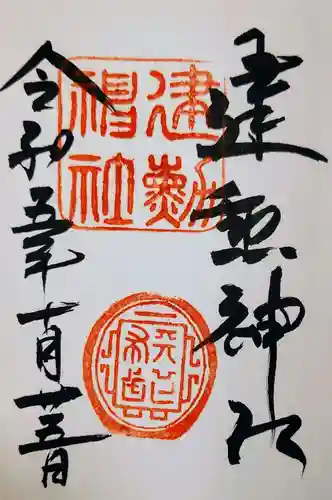 建勲神社
令和五年十月廿三日
建勲
神社